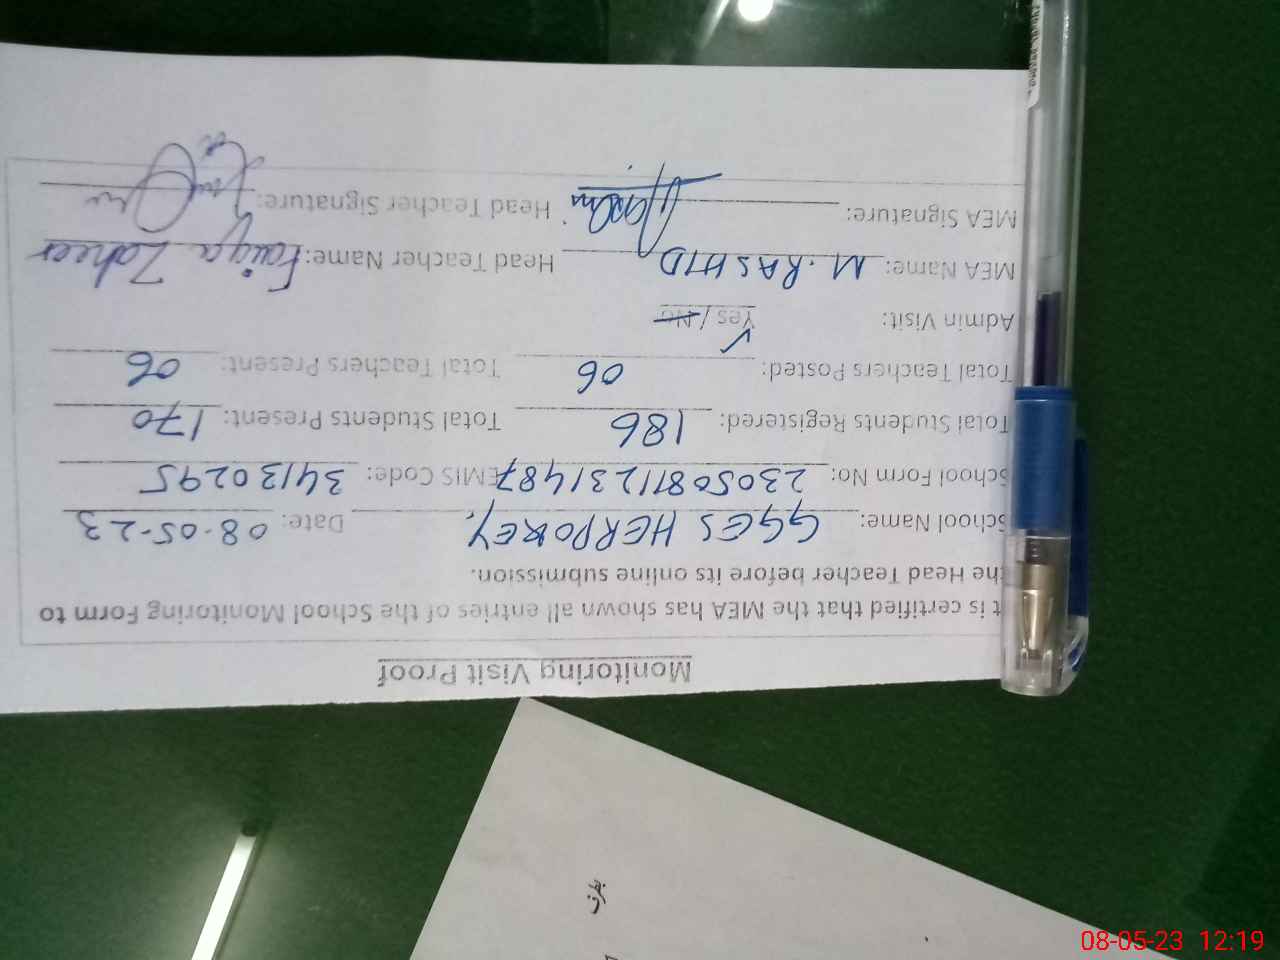 Monitoring Visit Proof
It is certified that the MEA has shown all entries of the School Monitoring Form to
the Head Teacher before its online submission.
School Name: GGES HERPOKEY, Date: 08-05-23
School Form No: 230508111231487 EMIS Code: 34130295
Total Students Registered: 186 Total Students Present: 170
Total Teachers Posted: 06 Total Teachers Present: 06
Admin Visit: Yes / No ✓
MEA Name: M. RASHID Head Teacher Name: Faiqa Zaheer
MEA Signature: Head Teacher Signature:
08-05-23 12:19